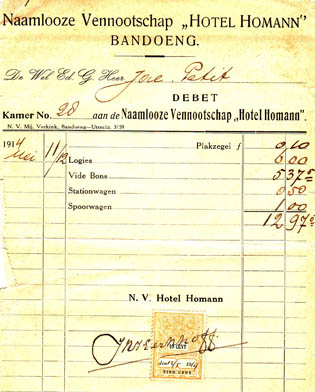 Naamlooze Vennootschap „HOTEL HOMANN"
BANDOENG.
De Wel Ed. G. Heer Joe. Petit
DEBET
Kamer No. 28 aan de Naamlooze Vennootschap „Hotel Homann".
N. V. Mij. Verkink, Bandoeng—Utrecht. 3159
1914 Mei 11/12 Plakzegel f 0,10
Logies 6,00
Vide Bons 5,375
Stationwagen 0,50
Spoorwagen 1,00
12,975
N. V. Hotel Homann
VIER CENT